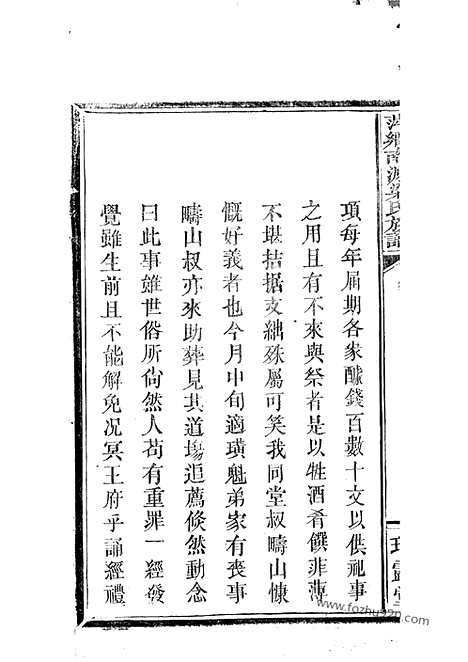 南源
氏族譜
項每年屆期各家醵錢百數十文以供祀事
之用且有不來與祭者是以牲酒肴饌菲薄
不堪拮据支絀殊屬可笑我同堂叔疇山慷
慨好義者也今月中旬適璜魁弟家有喪事
疇山叔亦來助葬見其道塲追薦倏然動念
曰此事雖世俗所尙然人苟有重罪一經發
覺雖生前且不能解免况冥王府乎誦經禮
www.fozhu920.com